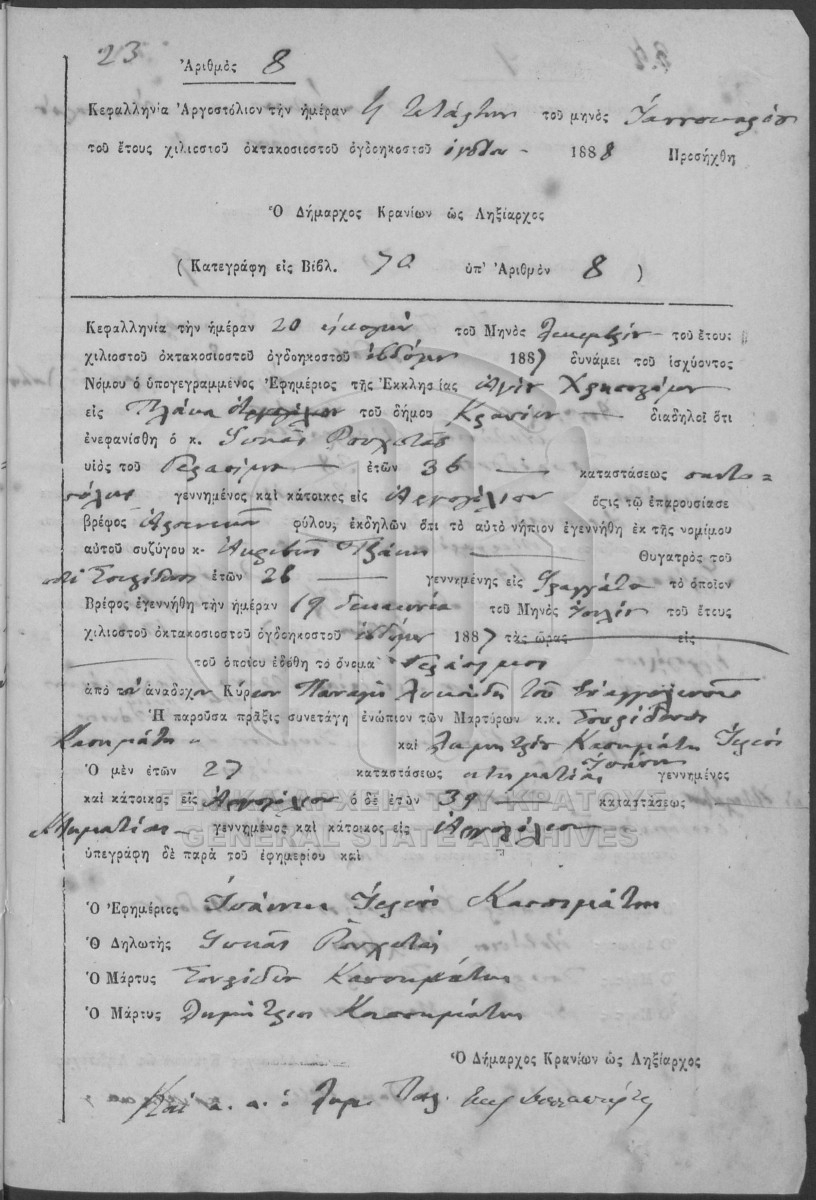 23
Ἀριθμὸς 8
Κεφαλληνία Ἀργοστόλιον τὴν ἡμέραν 4 τετάρτην τοῦ μηνὸς Ἰαννουαρίου
τοῦ ἔτους χιλιοστοῦ ὀκτακοσιοστοῦ ὀγδοηκοστοῦ ὀγδόου 1888 Προσήχθη
Ὁ Δήμαρχος Κρανίων ὡς Ληξίαρχος
(Κατεγράφη εἰς Βιβλ. 7α ὑπ' Ἀριθμὸν 8)
Κεφαλληνία τὴν ἡμέραν 20 εἰκοστὴν τοῦ Μηνὸς Δεκεμβρίου τοῦ ἔτους
χιλιοστοῦ ὀκτακοσιοστοῦ ὀγδοηκοστοῦ ἑβδόμου 1887 δυνάμει τοῦ ἰσχύοντος
Νόμου ὁ ὑπογεγραμμένος Ἐφημέριος τῆς Ἐκκλησίας Ἁγίου
εἰς τοῦ δήμου Κρανίων διαδηλοῖ ὅτι
ἐνεφανίσθη ὁ κ.
υἱὸς τοῦ Γερασίμου ἐτῶν 36 καταστάσεως παντο=
πώλης γεννημένος καὶ κάτοικος εἰς Ἀργοστόλιον ὅςις τῷ ἐπαρουσίασε
βρέφος Ἀρσενικοῦ φύλου, ἐκδηλῶν ὅτι τὸ αὐτὸ νήπιον ἐγεννήθη ἐκ τῆς νομίμου
αὐτοῦ συζύγου κ. Θυγατρὸς τοῦ
ποτὲ Σπυρίδωνος ἐτῶν 26 γεννημένης εἰς Φραγγάτα τὸ ὁποῖον
Βρέφος ἐγεννήθη τὴν ἡμέραν 19 δεκαεννέα τοῦ Μηνὸς Ἰουλίου τοῦ ἔτους
χιλιοστοῦ ὀκτακοσιοστοῦ ὀγδοηκοστοῦ ἑβδόμου 1887 τὰς ὥρας εἰς
τοῦ ὁποίου ἐδόθη τὸ ὄνομα Γεράσιμος
ἀπὸ τὸν ἀνάδοχον Κύριον Παναγῆ τοῦ Εὐαγγελινοῦ
Ἡ παροῦσα πρᾶξις συνετάχη ἐνώπιον τῶν Μαρτύρων κ.κ. Σπυρίδωνος
Κασιμάτη καὶ Δημητρίου Κασιμάτη Ἱερέως
Ἰωάννου
Ὁ μὲν ἐτῶν 27 καταστάσεως κτηματίας γεννημένος
καὶ κάτοικος εἰς Ἀργοστόλιον ὁ δὲ ἐτῶν 39 καταστάσεως
Κτηματίας γεννημένος καὶ κάτοικος εἰς Ἀργοστόλιον
ὑπεγράφη δὲ παρὰ τοῦ ἐφημερίου καὶ
Ὁ Ἐφημέριος Ἰωάννης Ἱερεὺς Κασσιμάτης
Ὁ Δηλωτὴς
Ὁ Μάρτυς Σπυρίδων Κασσιμάτης
Ὁ Μάρτυς Δημήτριος Κασσιμάτης
Ὁ Δήμαρχος Κρανίων ὡς Ληξίαρχος
ΓΕΝΙΚΑ ΑΡΧΕΙΑ ΤΟΥ ΚΡΑΤΟΥΣ
GENERAL STATE ARCHIVES